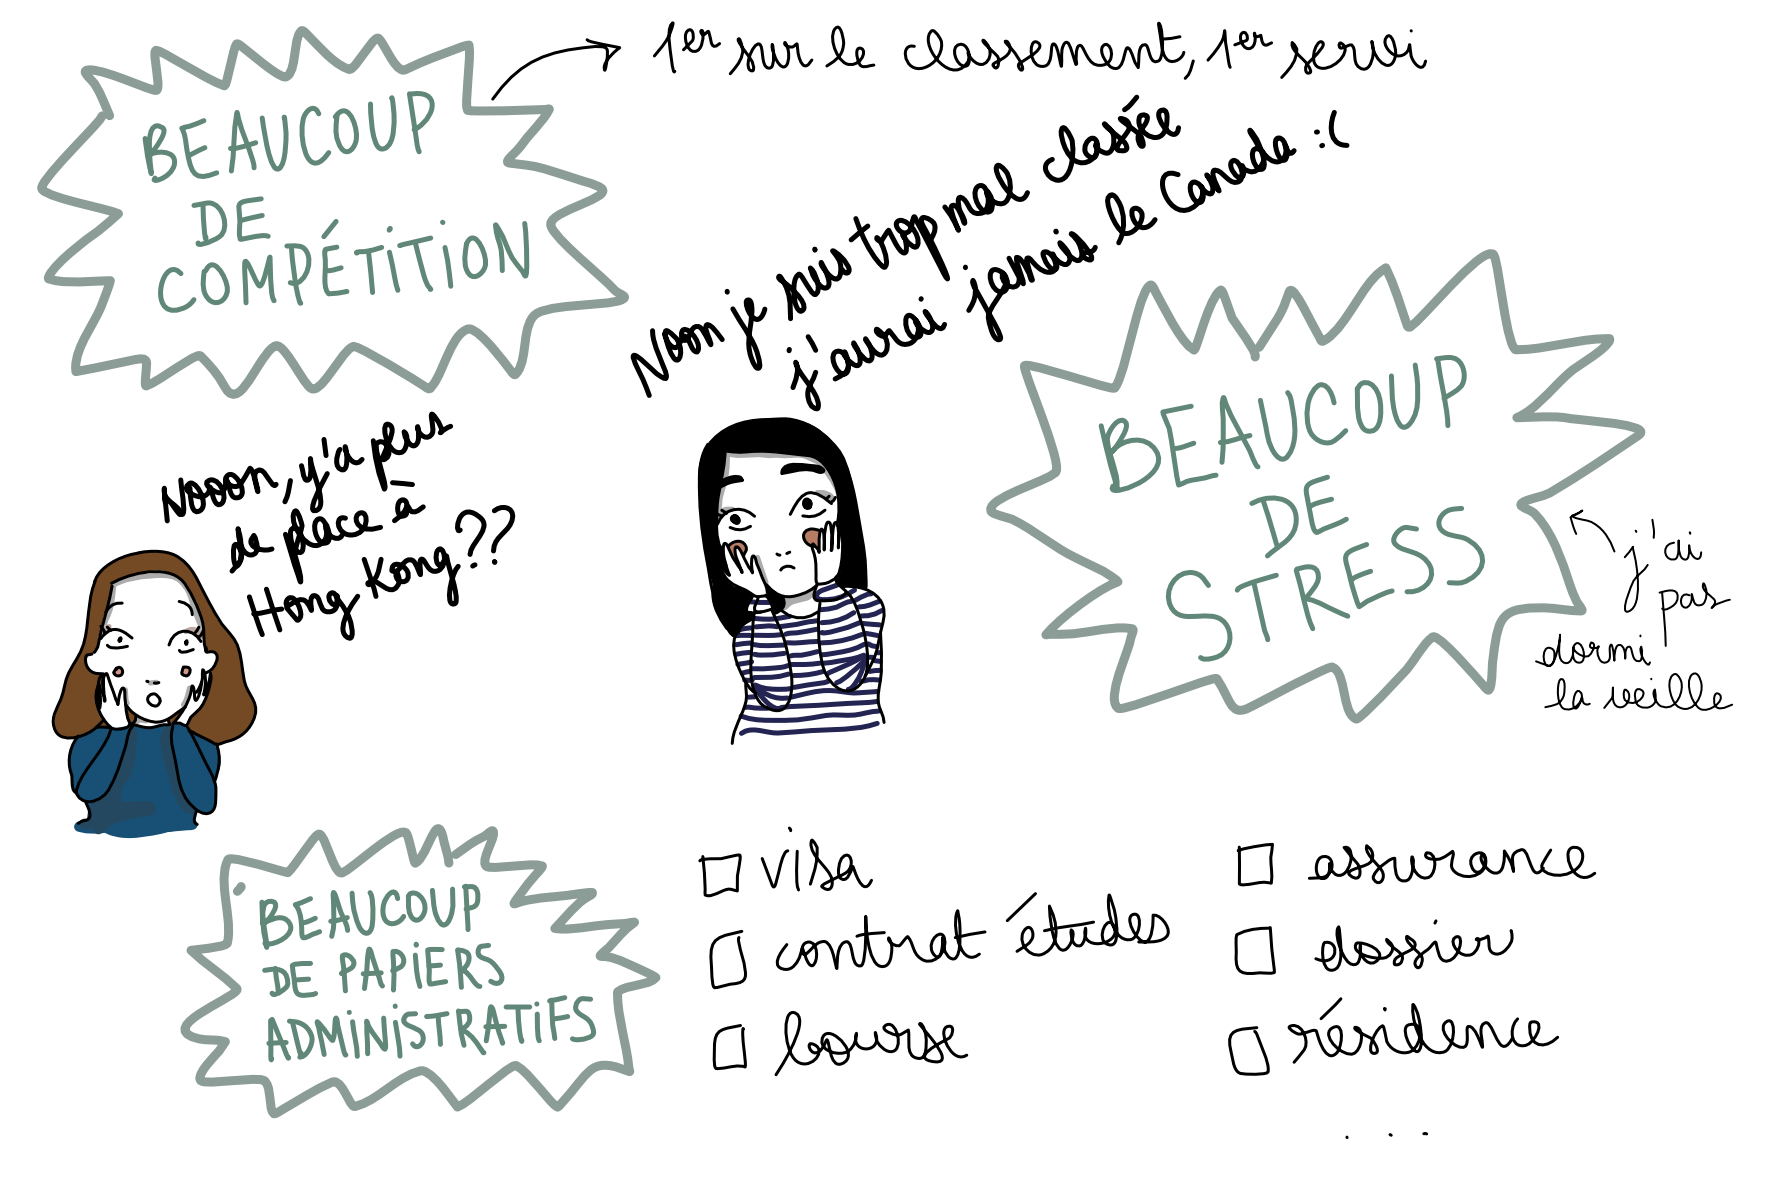 BEAUCOUP
DE
COMPÉTITION
1er sur le classement, 1er servi
Noon je suis trop mal classée
j'aurai jamais le Canada :(
Nooon, y'a plus
de place à
Hong Kong??
BEAUCOUP
DE
STRESS
j'ai
pas
dormi
la veille
BEAUCOUP
DE PAPIERS
ADMINISTRATIFS
visa
contrat études
bourse
assurance
dossier
résidence
...